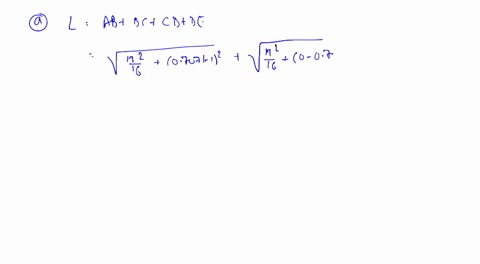 ⓐ L = AB + BC + CD + DE
= √(π²/16 + (0.7071-1)²) + √(π²/16 + (0-0.7